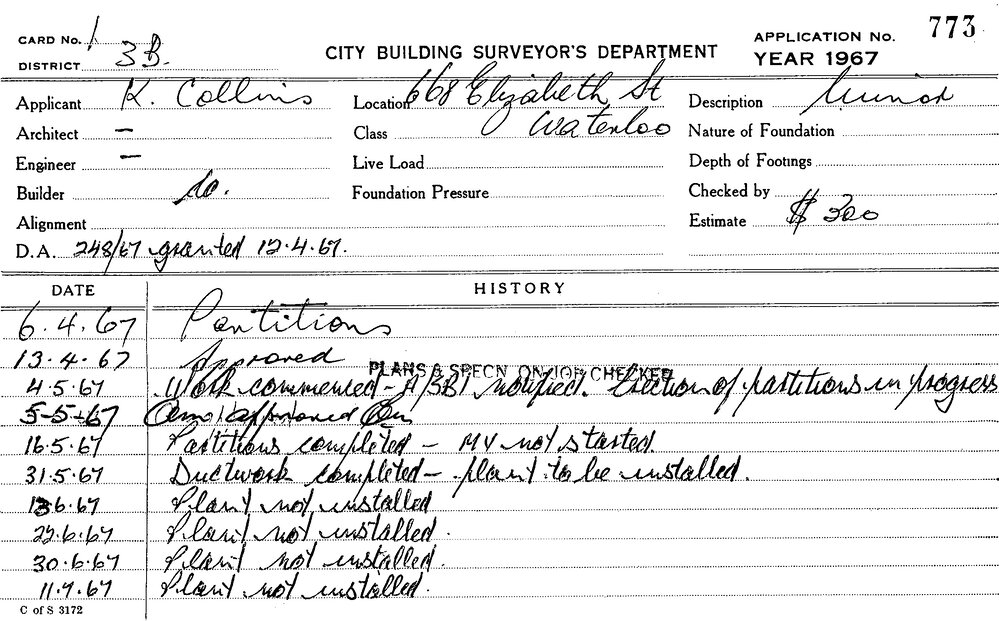 CARD No. 1
DISTRICT 3B.
CITY BUILDING SURVEYOR'S DEPARTMENT
APPLICATION No. 773
YEAR 1967
Applicant K. Collins
Location 668 Elizabeth St
Description Minor
Architect —
Class Waterloo
Nature of Foundation
Engineer —
Live Load
Depth of Footings
Builder do.
Foundation Pressure
Checked by
Alignment
Estimate $ 300
D.A. 248/67 granted 12.4.67.
DATE HISTORY
6.4.67 Partitions
13.4.67 Approved
PLANS & SPECN. ON JOB CHECKED
4.5.67 Work commenced - A/SBI notified. Erection of partitions in progress
5-5-67 approved
16.5.67 Partitions completed - MV not started.
31.5.67 Ductwork completed - plant to be installed.
6.67 Plant not installed
22.6.67 Plant not installed.
30.6.67 Plant not installed.
11.7.67 Plant not installed.
C of S 3172